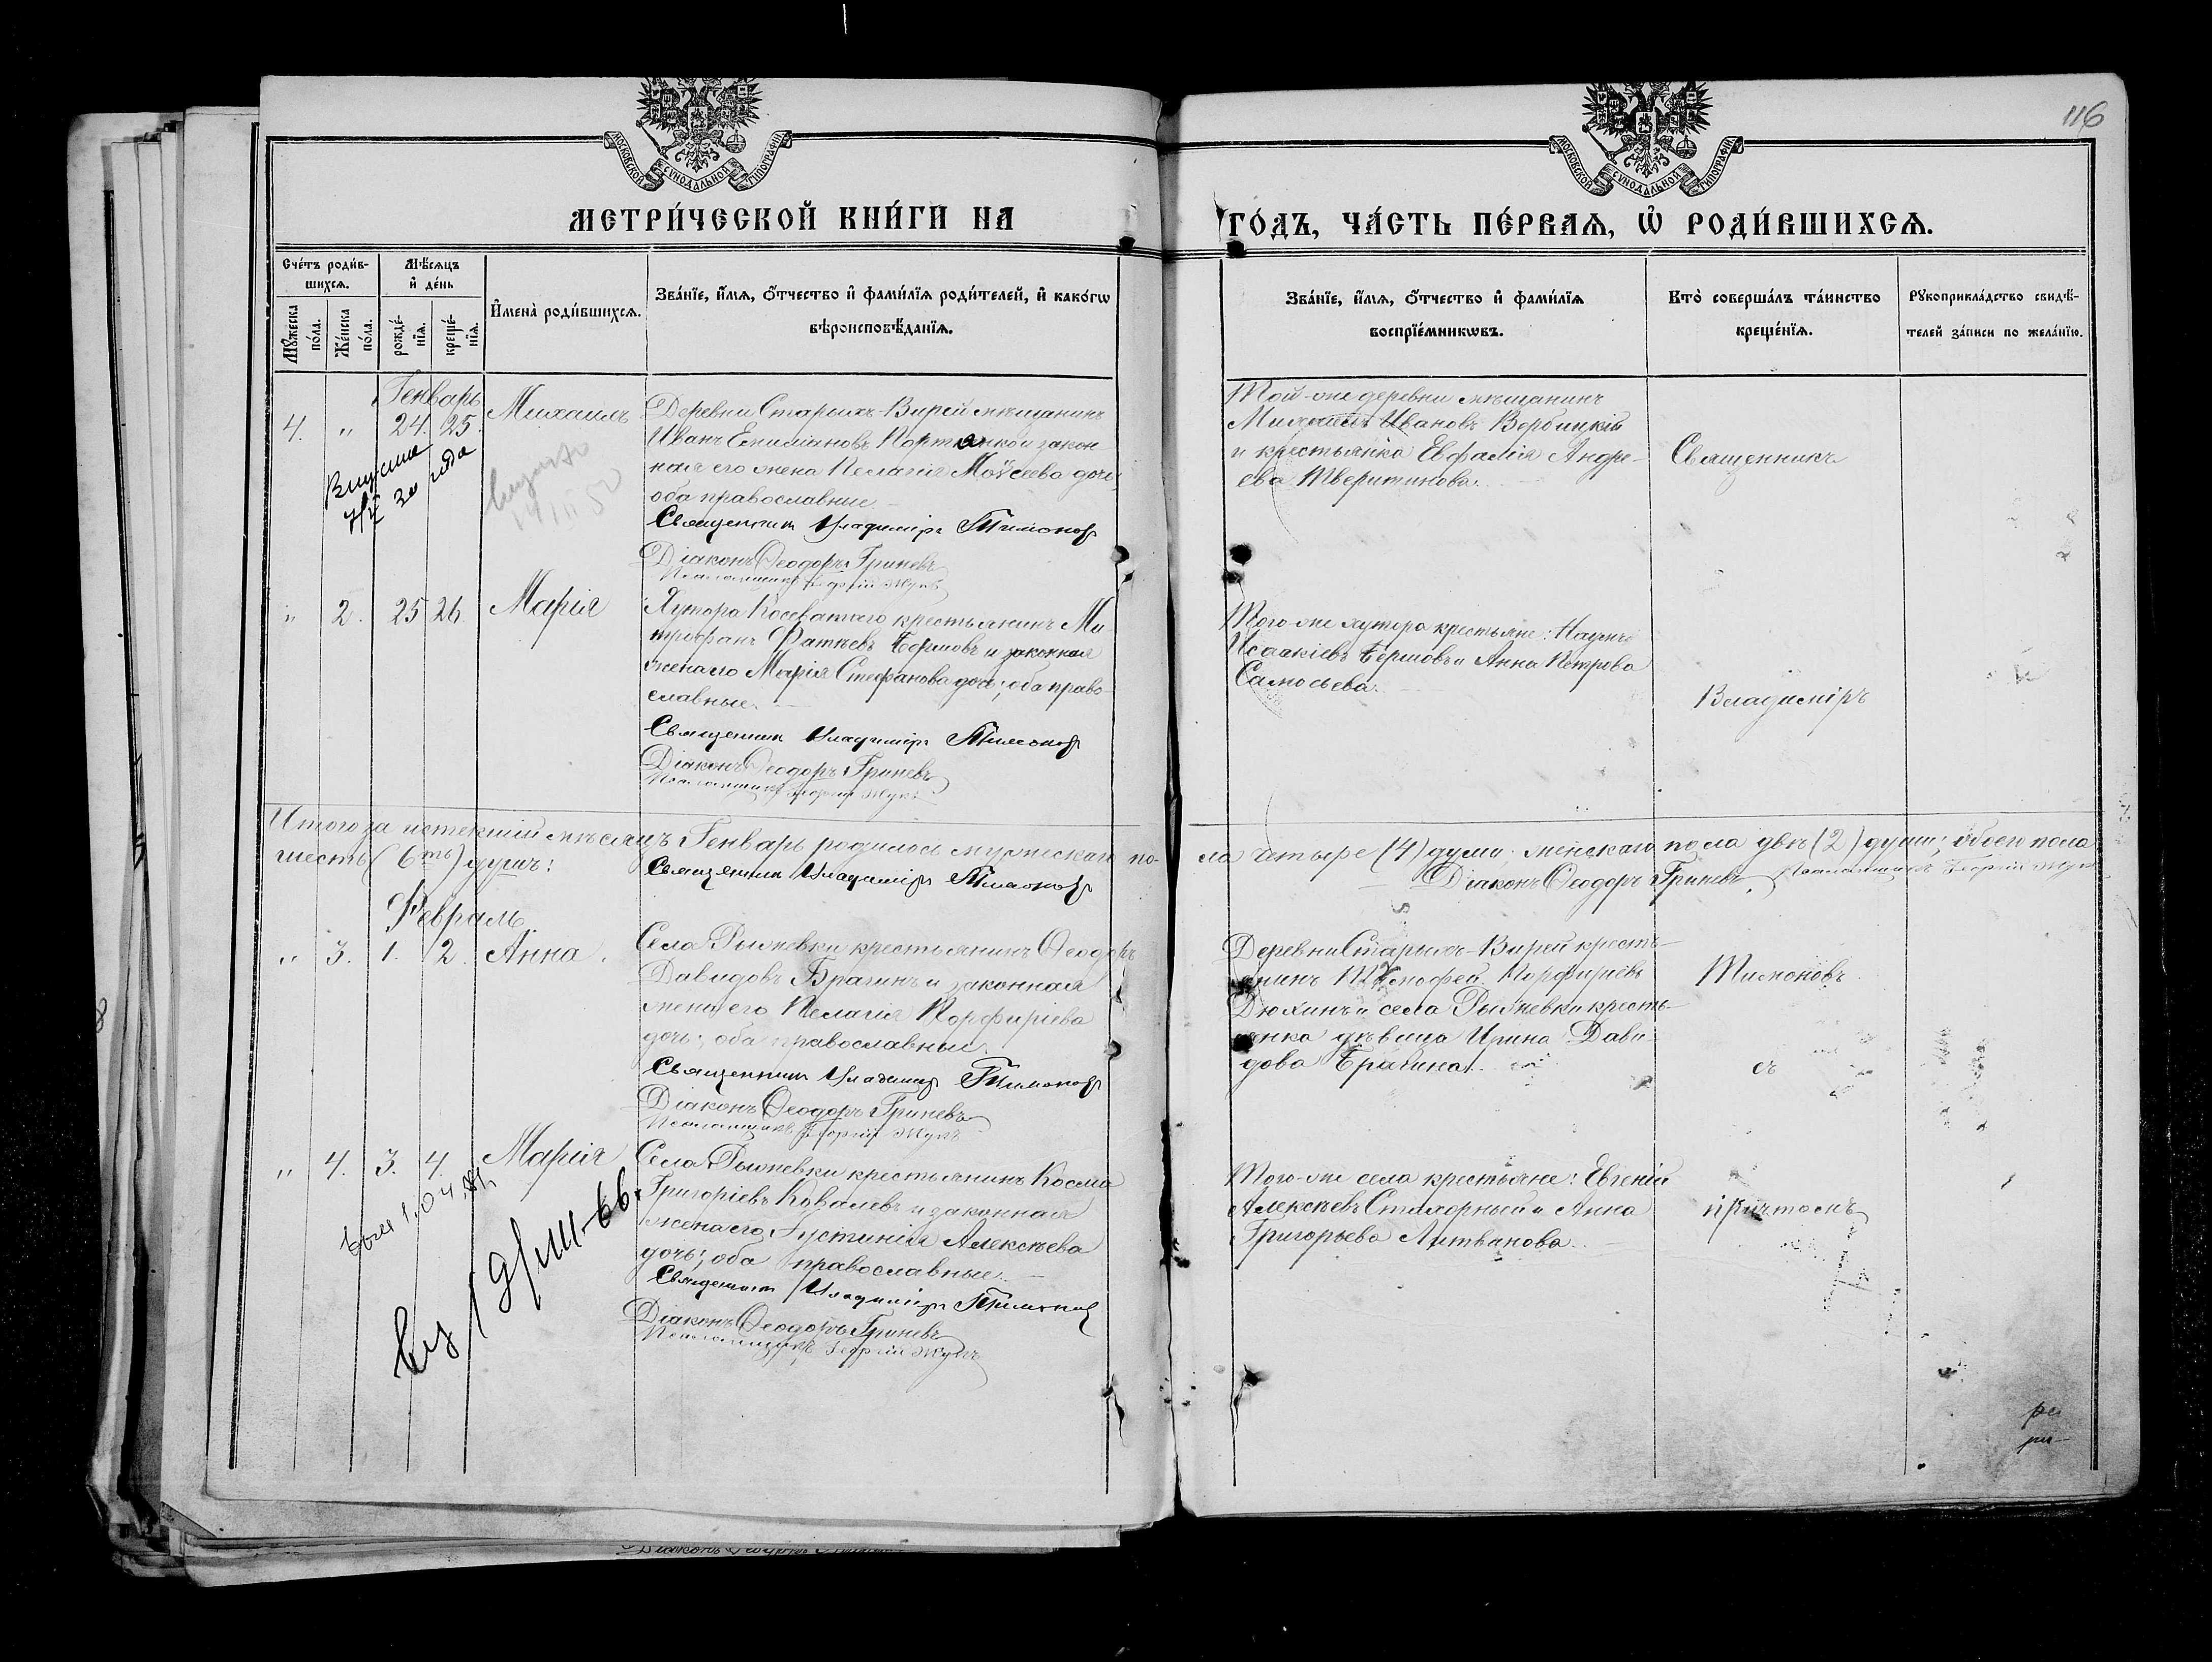 116
МОСКОВСКОЙ СУНОДАЛЬНОЙ ТИПОГРАФІИ
МОСКОВСКОЙ СУНОДАЛЬНОЙ ТИПОГРАФІИ
МЕТРИ́ЧЕСКОЙ КНИ́ГИ НА
ГО́ДЪ, ЧА́СТЬ ПЕ́РВАѦ, Ѡ҆ РОДИ́ВШИХСѦ.
Сче́тъ роди́в-
шихсѧ.
Мѣ́сѧцъ
и҆ де́нь
Мꙋ́жеска
по́ла.
Же́нска
по́ла.
рожде́-
нїѧ.
креще́-
нїѧ.
И҆мена̀ роди́вшихсѧ.
Зва́нїе, и҆́мѧ, ѻ҆́тчество и҆ фами́лїѧ роди́телей, и҆ како́гѡ
вѣроисповѣ́данїѧ.
Зва́нїе, и҆́мѧ, ѻ҆́тчество и҆ фами́лїѧ
воспрїе́мникѡвъ.
Кто̀ соверша́лъ та́инство
креще́нїѧ.
Рꙋкоприкла́дство свидѣ́-
телей за́писи по жела́нїю.
Генварь
4. " 24. 25. Михаилъ
Деревни Старыхъ-Вирей мѣщанинъ
Иванъ Епимановъ и закон
ная его жена Пелагія Моѵсеева дочь,
оба православные
Священникъ Владиміръ Тимоновъ
Діаконъ Ѳеодоръ Гриневъ
Псаломщикъ Георгій Жукъ
Той-же деревни мѣщанинъ
Михаилъ Ивановъ Вербицкій
и крестьянка Евфалія Андре-
ева Тверитинова.
Священникъ
" 2. 25 26 Марія
Хутора Косеватаго крестьянинъ Ми-
трофанъ Фатѣевъ и законная
жена его Марія Стефанова дочь; оба право-
славные.
Священникъ Владиміръ Тимоновъ
Діаконъ Ѳеодоръ Гриневъ
Псаломщикъ Георгій Жукъ
Того-же хутора крестьяне: Наумъ
Исаакіевъ и Анна Петрова
Самосьева.
Владиміръ
Итого за истекшій мѣсяцъ Генварь родилось мужескаго по-
ла четыре (4) души; женскаго пола двѣ (2) души; обоего пола
шесть (6ть) душъ:
Священникъ Владиміръ Тимоновъ
Діаконъ Ѳеодоръ Гриневъ, Псаломщикъ Георгій Жукъ
Февраль
" 3. 1. 2. Анна.
Села Рыжевки крестьянинъ Ѳеодоръ
Давидовъ Брагинъ и законная
жена его Пелагія Порфиріева
дочь; оба православные.
Священникъ Владиміръ Тимоновъ
Діаконъ Ѳеодоръ Гриневъ
Псаломщикъ Георгій Жукъ
Деревни Старыхъ-Вирей кресть-
янинъ Тимофей Порфиріевъ
Дюкинъ и села Рыжевки кресть-
янка дѣвица Ирина Дави-
дова Брагина.
Тимоновъ
съ
" 4. 3. 4. Марія
Села Рыжевки крестьянинъ Косма
Григоріевъ Ковалевъ и законная
жена его Іустинія Алексѣева
дочь; оба православные.
Священникъ Владиміръ Тимоновъ
Діаконъ Ѳеодоръ Гриневъ
Псаломщикъ Георгій Жукъ
Того-же села крестьяне: Евгеній
Алексѣевъ Стахорный и Анна
Григорьева Литванова.
причтомъ